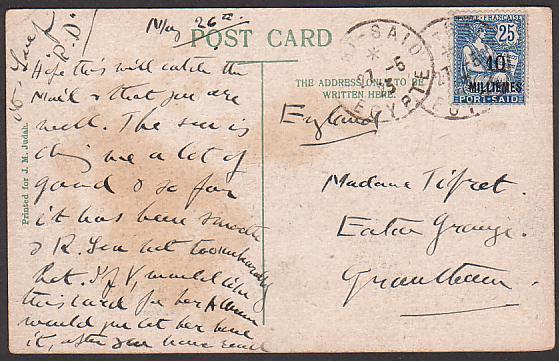 May 26th
POST CARD
Hope this will catch the
Mail & that you are
well. The sea is
doing me a lot of
good & so far
it has been smooth
& R. Sea not too
hot. If V. would like
this card for her Album
would you let her have
it, after you have read
Printed for J. M. Judah.
THE ADDRESS ONLY TO BE
WRITTEN HERE.
England
Madame Tifret.
Eaton Grange.
Grantham
SAID
27-5
13
EGYPTE
FRANÇAISE
25
10
MILLIEMES
PORT-SAID